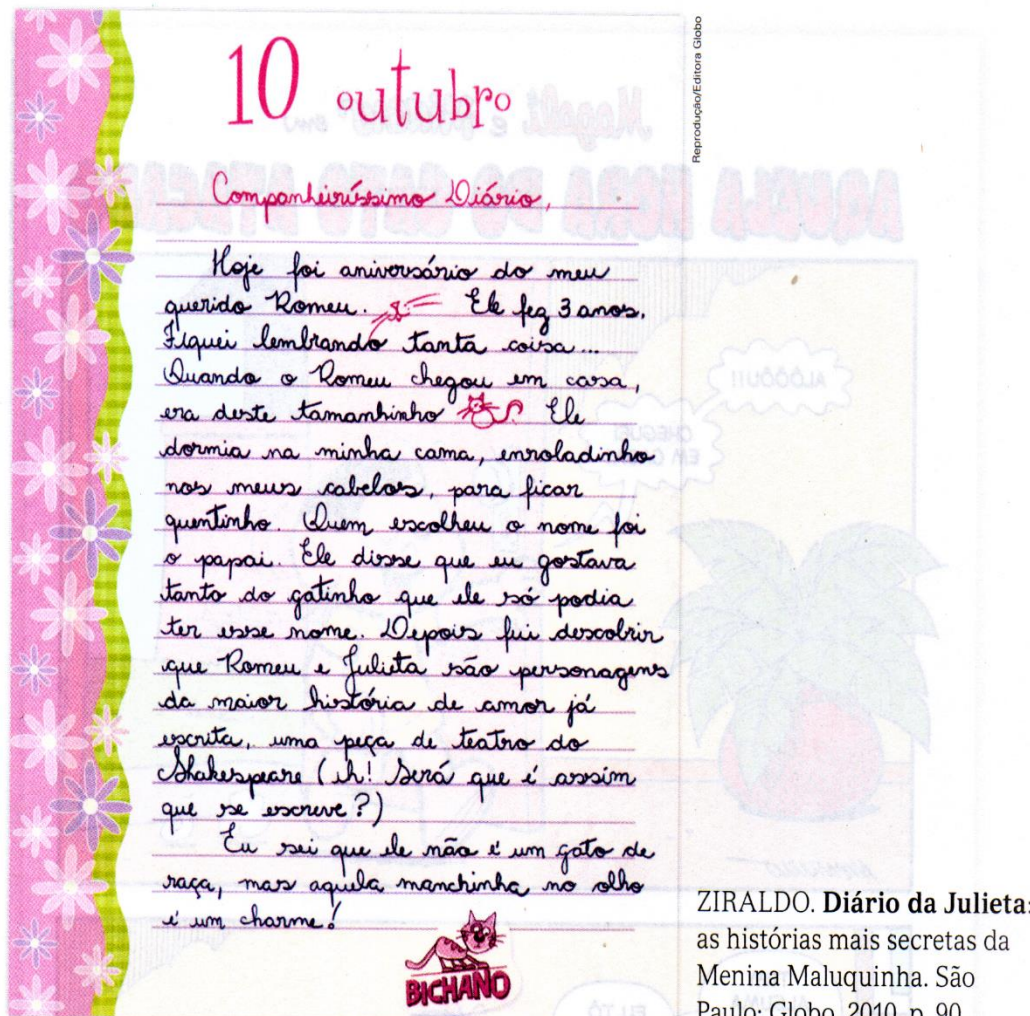 10 outubro
Companheiríssimo Diário,
Hoje foi aniversário do meu
querido Romeu. Ele fez 3 anos.
Fiquei lembrando tanta coisa...
Quando o Romeu chegou em casa,
era deste tamanhinho Ele
dormia na minha cama, enroladinho
nos meus cabelos, para ficar
quentinho. Quem escolheu o nome foi
o papai. Ele disse que eu gostava
tanto do gatinho que ele só podia
ter esse nome. Depois fui descobrir
que Romeu e Julieta são personagens
da maior história de amor já
escrita, uma peça de teatro do
Shakespeare (ih! Será que é assim
que se escreve?)
Eu sei que ele não é um gato de
raça, mas aquela manchinha no olho
é um charme!
BICHANO
Reprodução/Editora Globo
ZIRALDO. Diário da Julieta:
as histórias mais secretas da
Menina Maluquinha. São
Paulo: Globo, 2010. p. 90.
Magali e em
AQUELA HORA DO GATO
ALÔÔÔU!!
CHEGUEI
EM
EU TÔ
ALGUMA